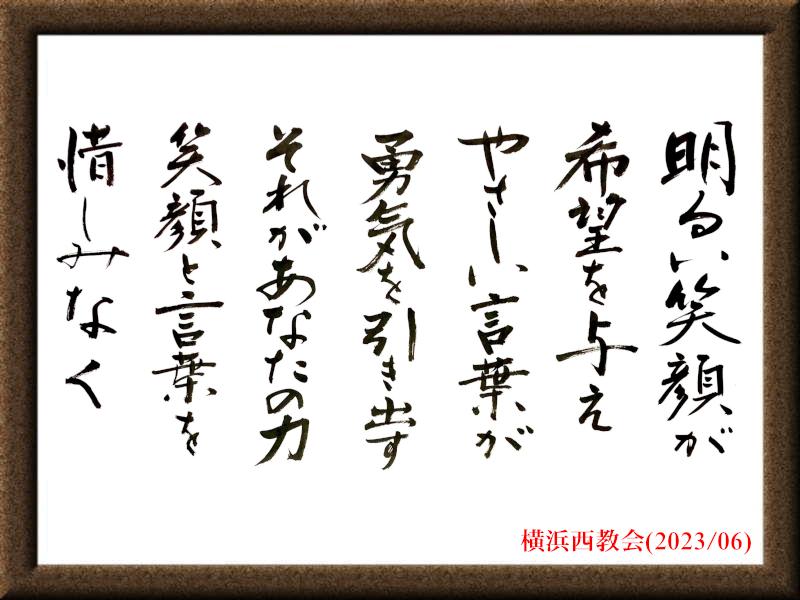 明るい笑顔が
希望を与え
やさしい言葉が
勇気を引き出す
それがあなたの力
笑顔と言葉を
惜しみなく
横浜西教会(2023/06)